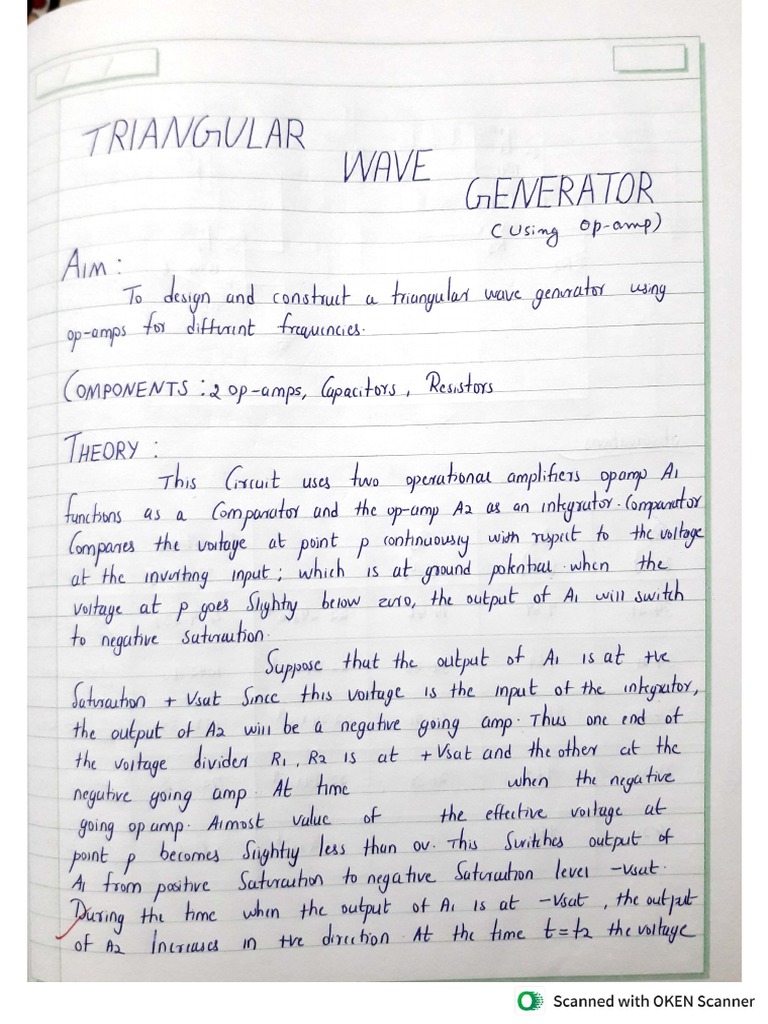 TRIANGULAR
WAVE
GENERATOR
(Using Op-amp)
AIM :
To design and construct a triangular wave generator using
op-amps for different frequencies.
COMPONENTS : 2 op-amps, Capacitors, Resistors
THEORY :
This Circuit uses two operational amplifiers opamp A1
functions as a Comparator and the op-amp A2 as an integrator. Comparator
Compares the voltage at point p continuously with respect to the voltage
at the inverting input ; which is at ground potential. when the
voltage at p goes Slightly below zero, the output of A1 will switch
to negative saturation.
Suppose that the output of A1 is at +ve
Saturation + Vsat Since this voltage is the input of the integrator,
the output of A2 will be a negative going amp. Thus one end of
the voltage divider R1, R2 is at + Vsat and the other at the
negative going amp. At time when the negative
going op amp. Almost value of the effective voltage at
point p becomes Slightly less than 0v. This Switches output of
A1 from positive Saturation to negative Saturation level -Vsat.
During the time when the output of A1 is at -Vsat, the output
of A2 Increases in +ve direction. At the time t=t2 the voltage
Scanned with OKEN Scanner